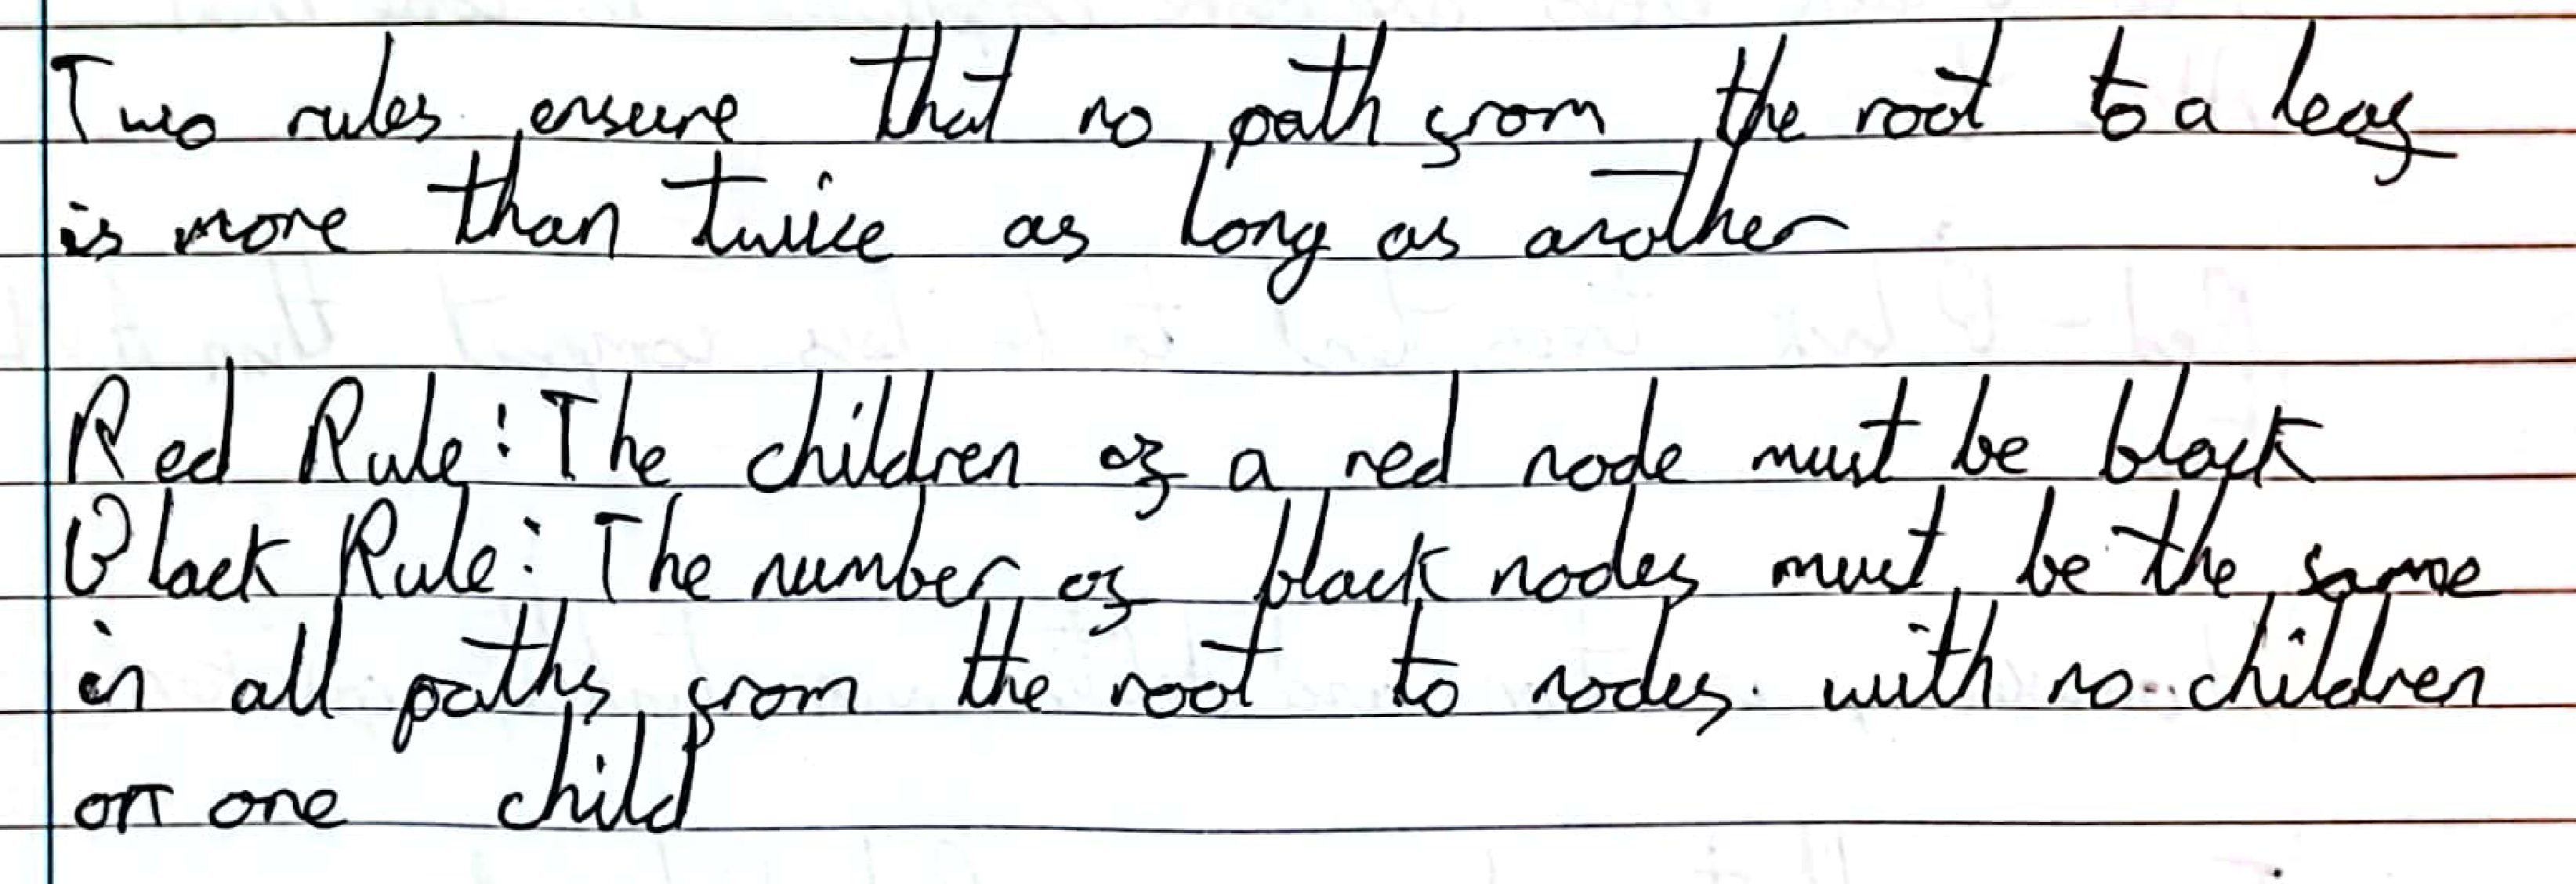 Two rules ensure that no path from the root to a leaf
is more than twice as long as another
Red Rule: The children of a red node must be black
Black Rule: The number of black nodes must be the same
in all paths from the root to nodes with no children
or one child